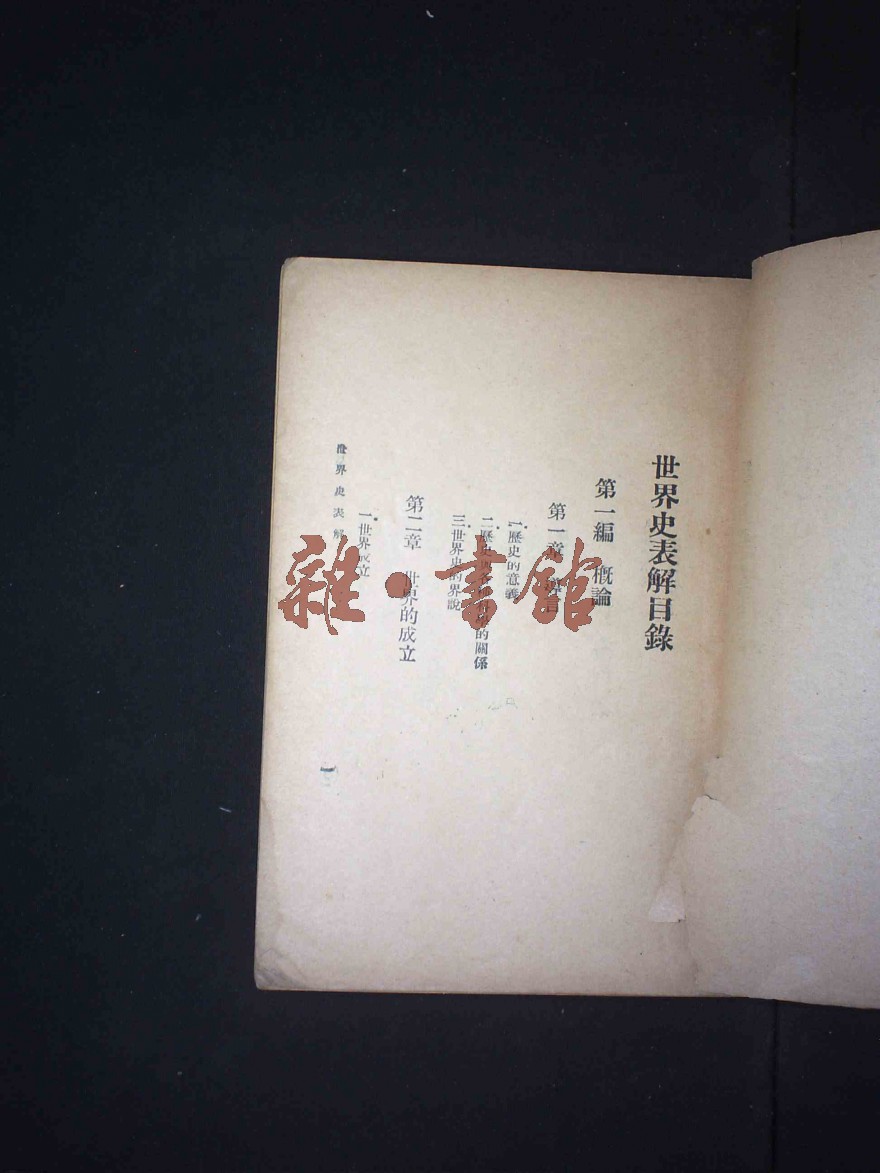 世界史表解目錄
第一編 概論
第一章 導言
1. 歷史的意義
二. 歷史與各種科學的關係
三. 世界史的界說
第二章 世界的成立
一. 世界成立
世界史表解
一
雜·書館